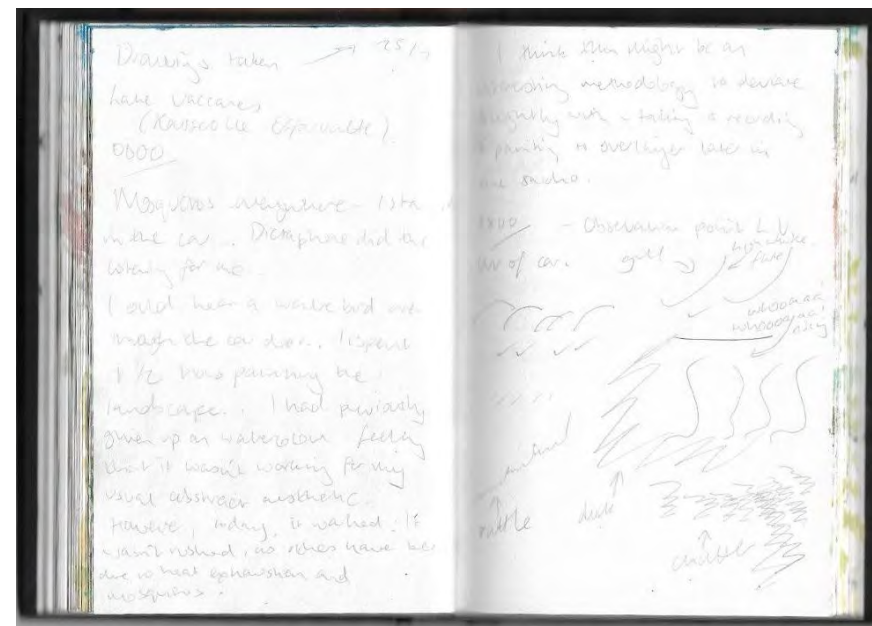 Drawings taken → 25/7
Lake Vaccares
0600
Mosquitos everywhere - I sta
in the car.. Dictaphone did the
listening for me.
I could hear a warble bird even
through the car door.. I spent
1 1/2 hrs painting the
landscape.. I had previously
given up on watercolour feeling
that it wasn't working for my
usual abstract aesthetic.
However, today, it worked. It
wasn't rushed, as others have been
due to heat exhaustion and
mosquitos.
I think this might be an
interesting methodology to
slightly with - taking a recording
& painting to overlayer later in
the studio.
- Observation point L.V
of car. gull
whoooaaa'
whoooaaa'
rising
rattle
duck
chatter